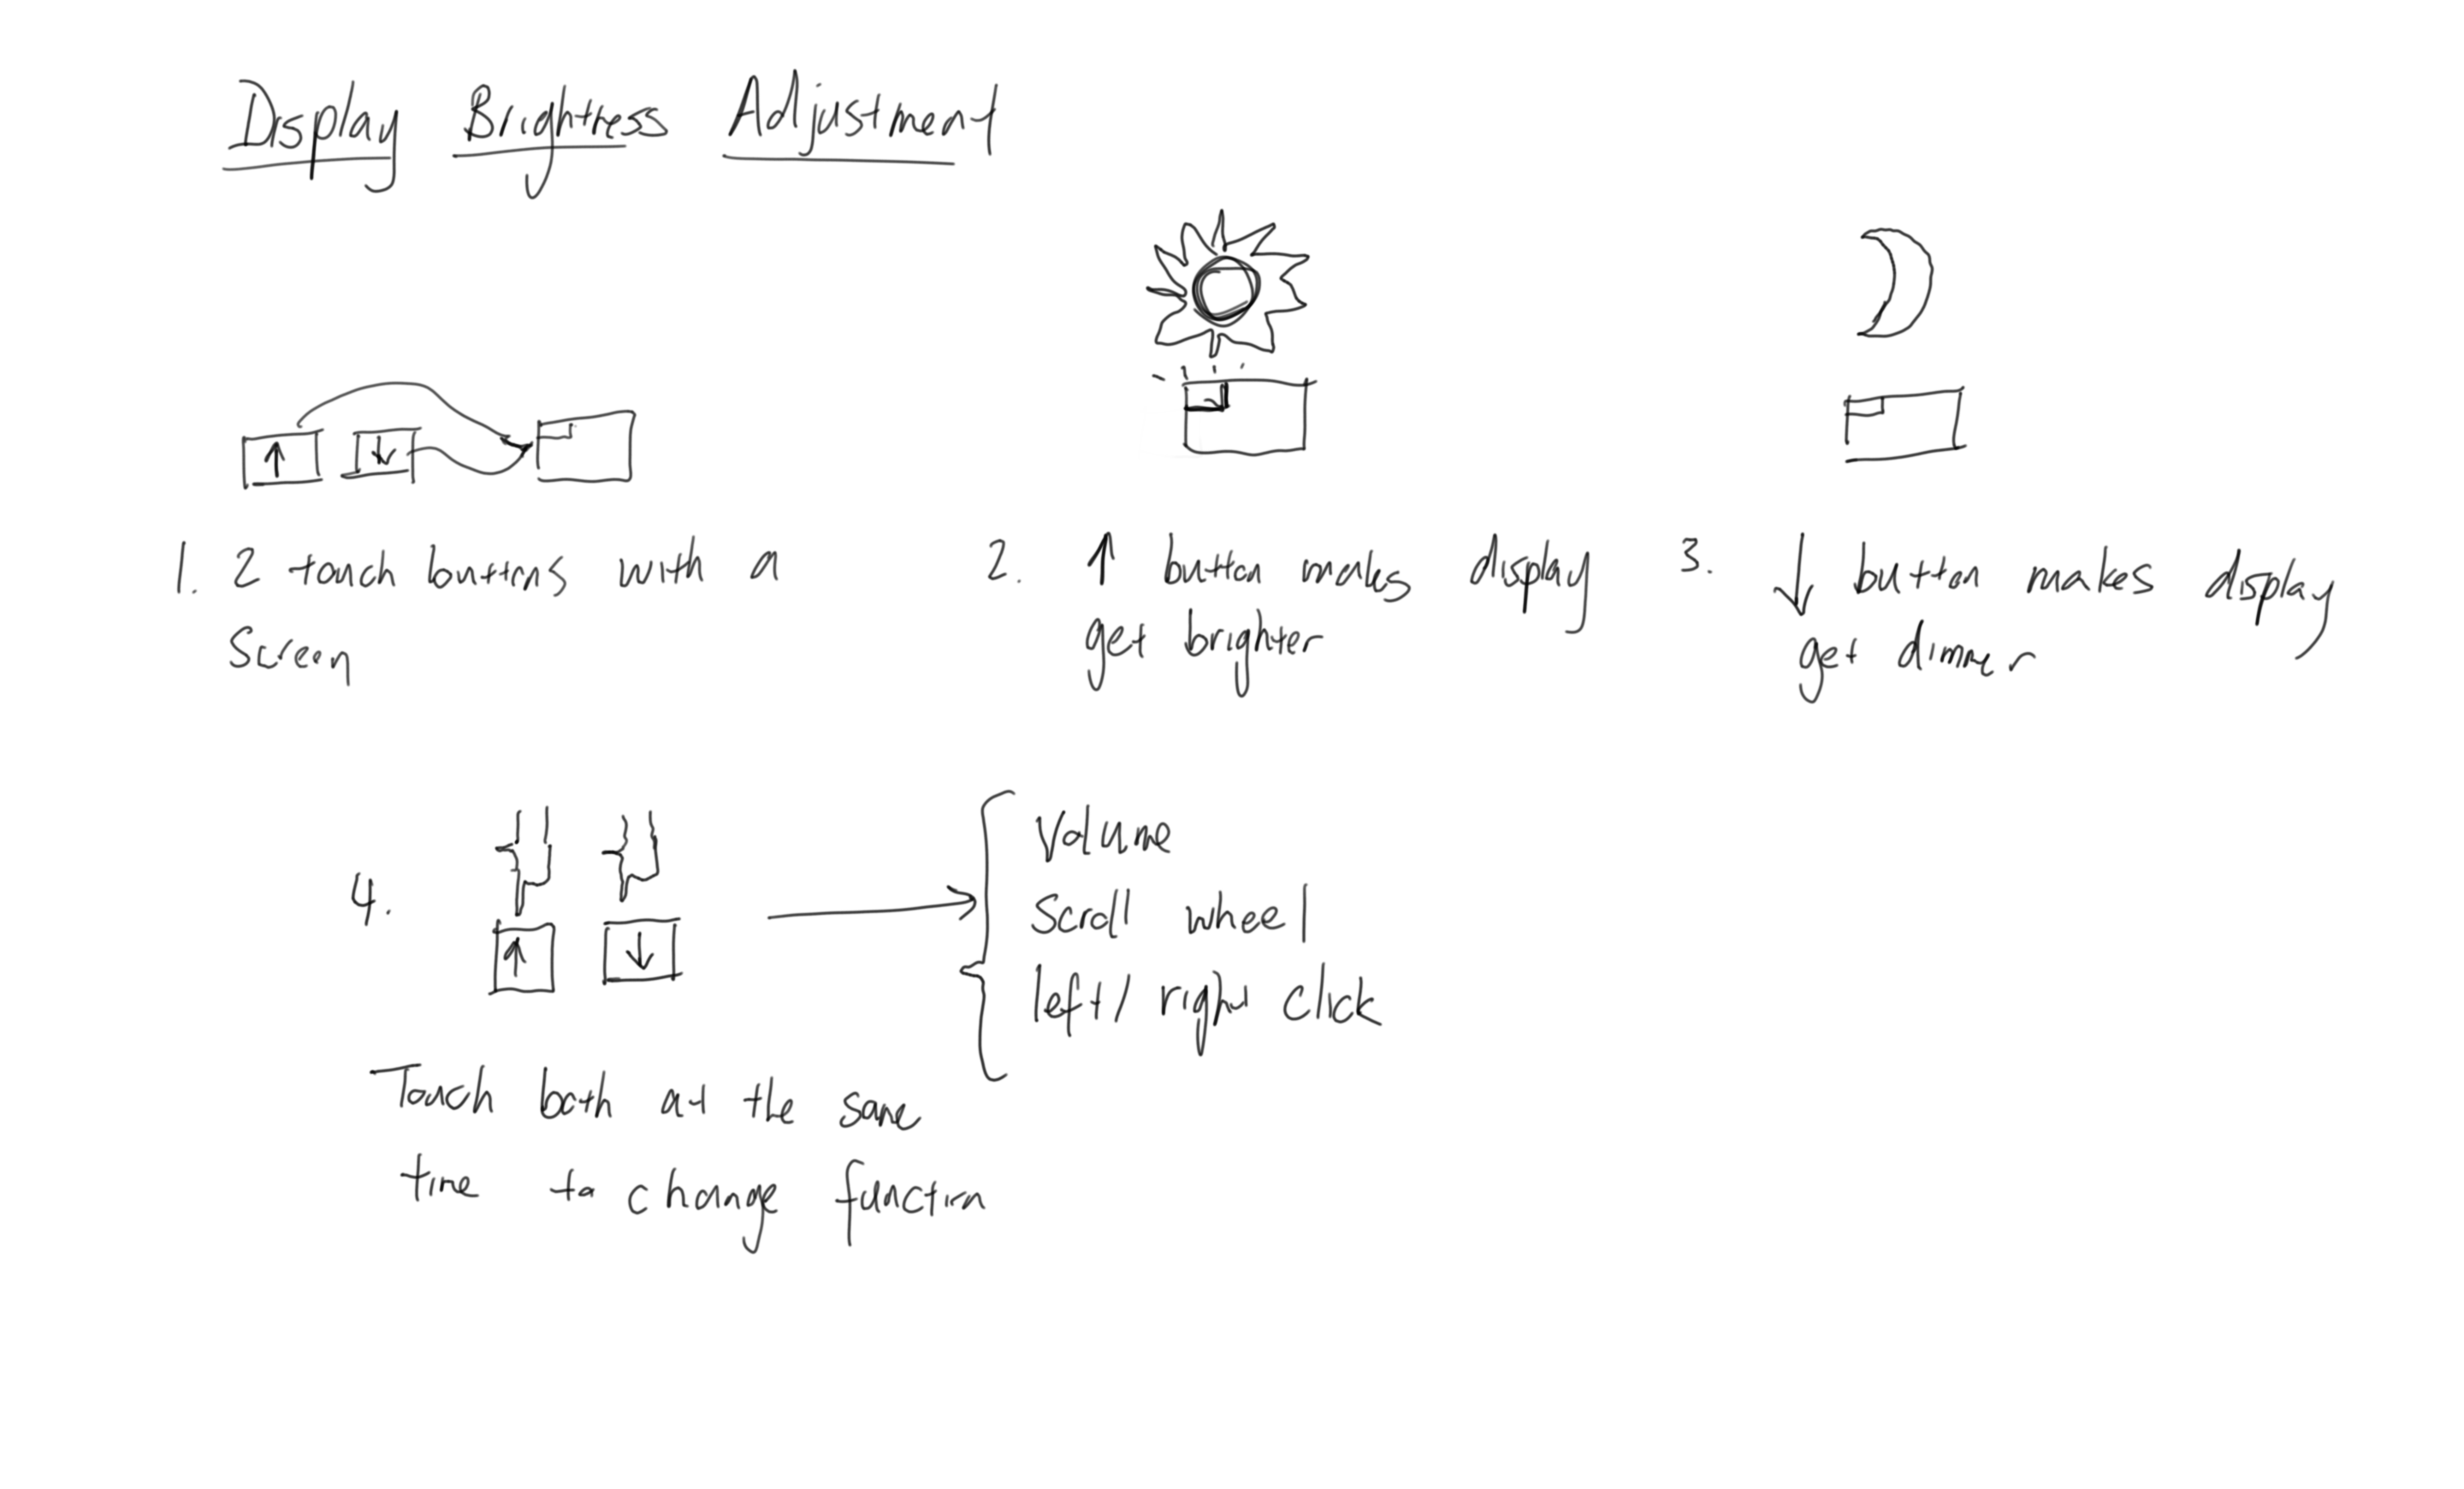 Display Brightness Adjustment
1. 2 touch buttons with a
screen
2. ↑ button makes display
get brighter
3. ↓ button makes display
get dimmer
4.
↑ ↓
Touch both at the same
time to change function
Volume
Scroll wheel
left/right click